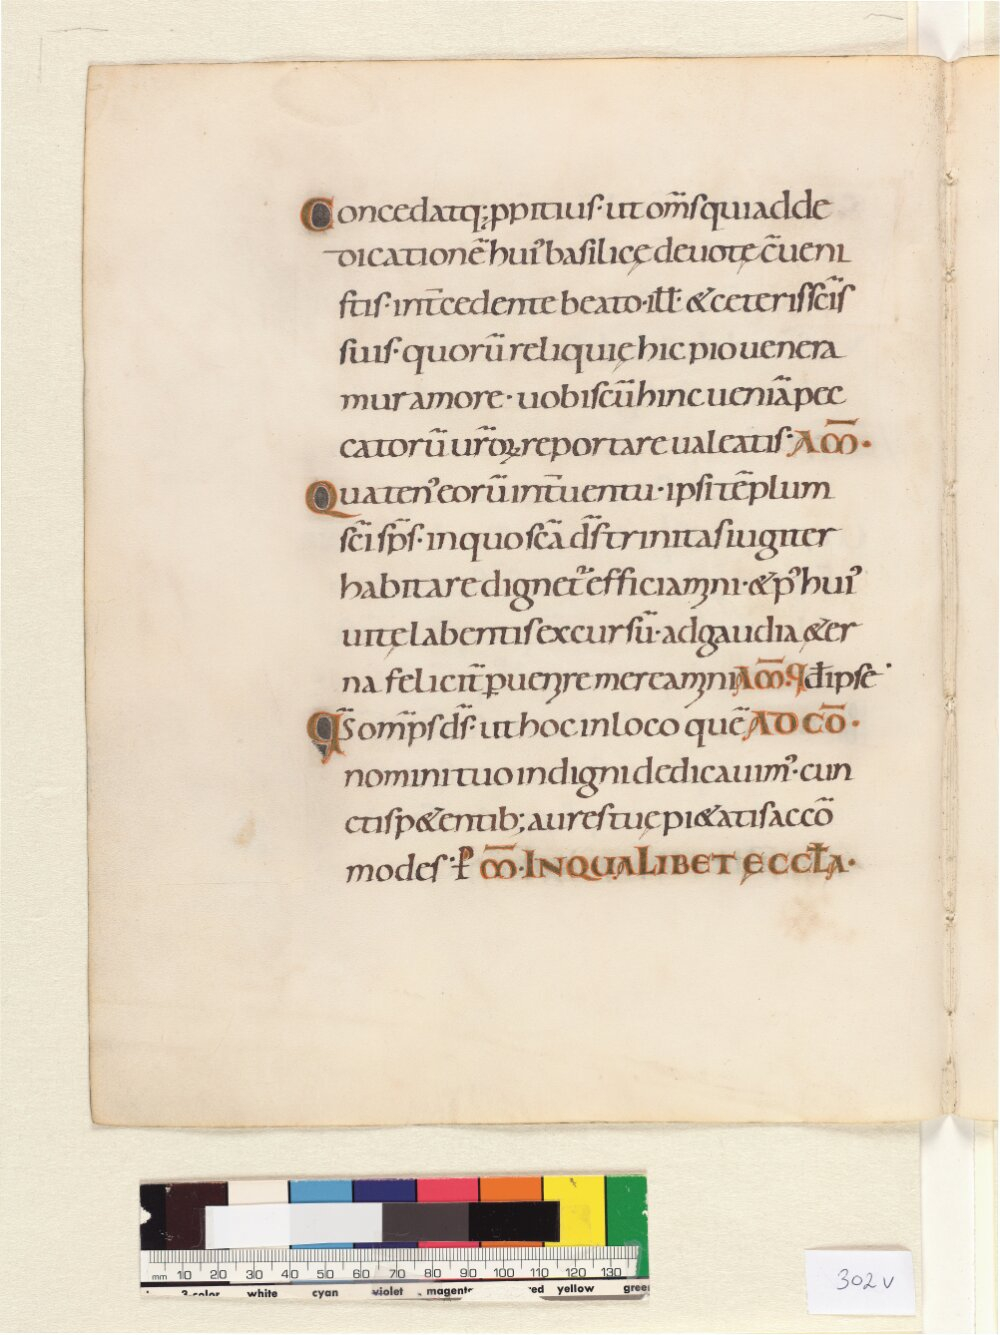 Concedatq;ꝓpitius·ut om̅s qui ad de
dicatione̅ hui᾿ basilicę deuotę c̅ueni
stis· int̅cedente beato·ill̅· & ceteris sc̅is
suis· quoru̅ reliquię hic pio uenera
mur amore· uobiscu̅ hinc uenia̅ pec
catoru̅ ur̅oꝝ reportare ualeatis· AM̅·
Quaten᾿ eoru̅ int̅uentu· ipsi te̅plum
sc̅i sp̅s· in quo sc̅a d̅s trinitas iugiter
habitare dignet᾿ efficiamni· & p᾿ hui᾿
uitę labentis excursu̅· ad gaudia &er
na felicit̅ ꝑuenire mereamni AM̅· qd̅ ipse·
Q̅S om̅ps d̅s· ut hoc in loco que̅ AD CO̅·
nomini tuo indigni dedicauim᾿· cun
ctis p&entib; aures tuę pi&atis acco̅
modes· ꝑ M̅· IN QUALIBET ĘCCL̅A·
mm 10 20 30 40 50 60 70 80 90 100 110 120 130
3-color white cyan violet magenta red yellow green
302 v